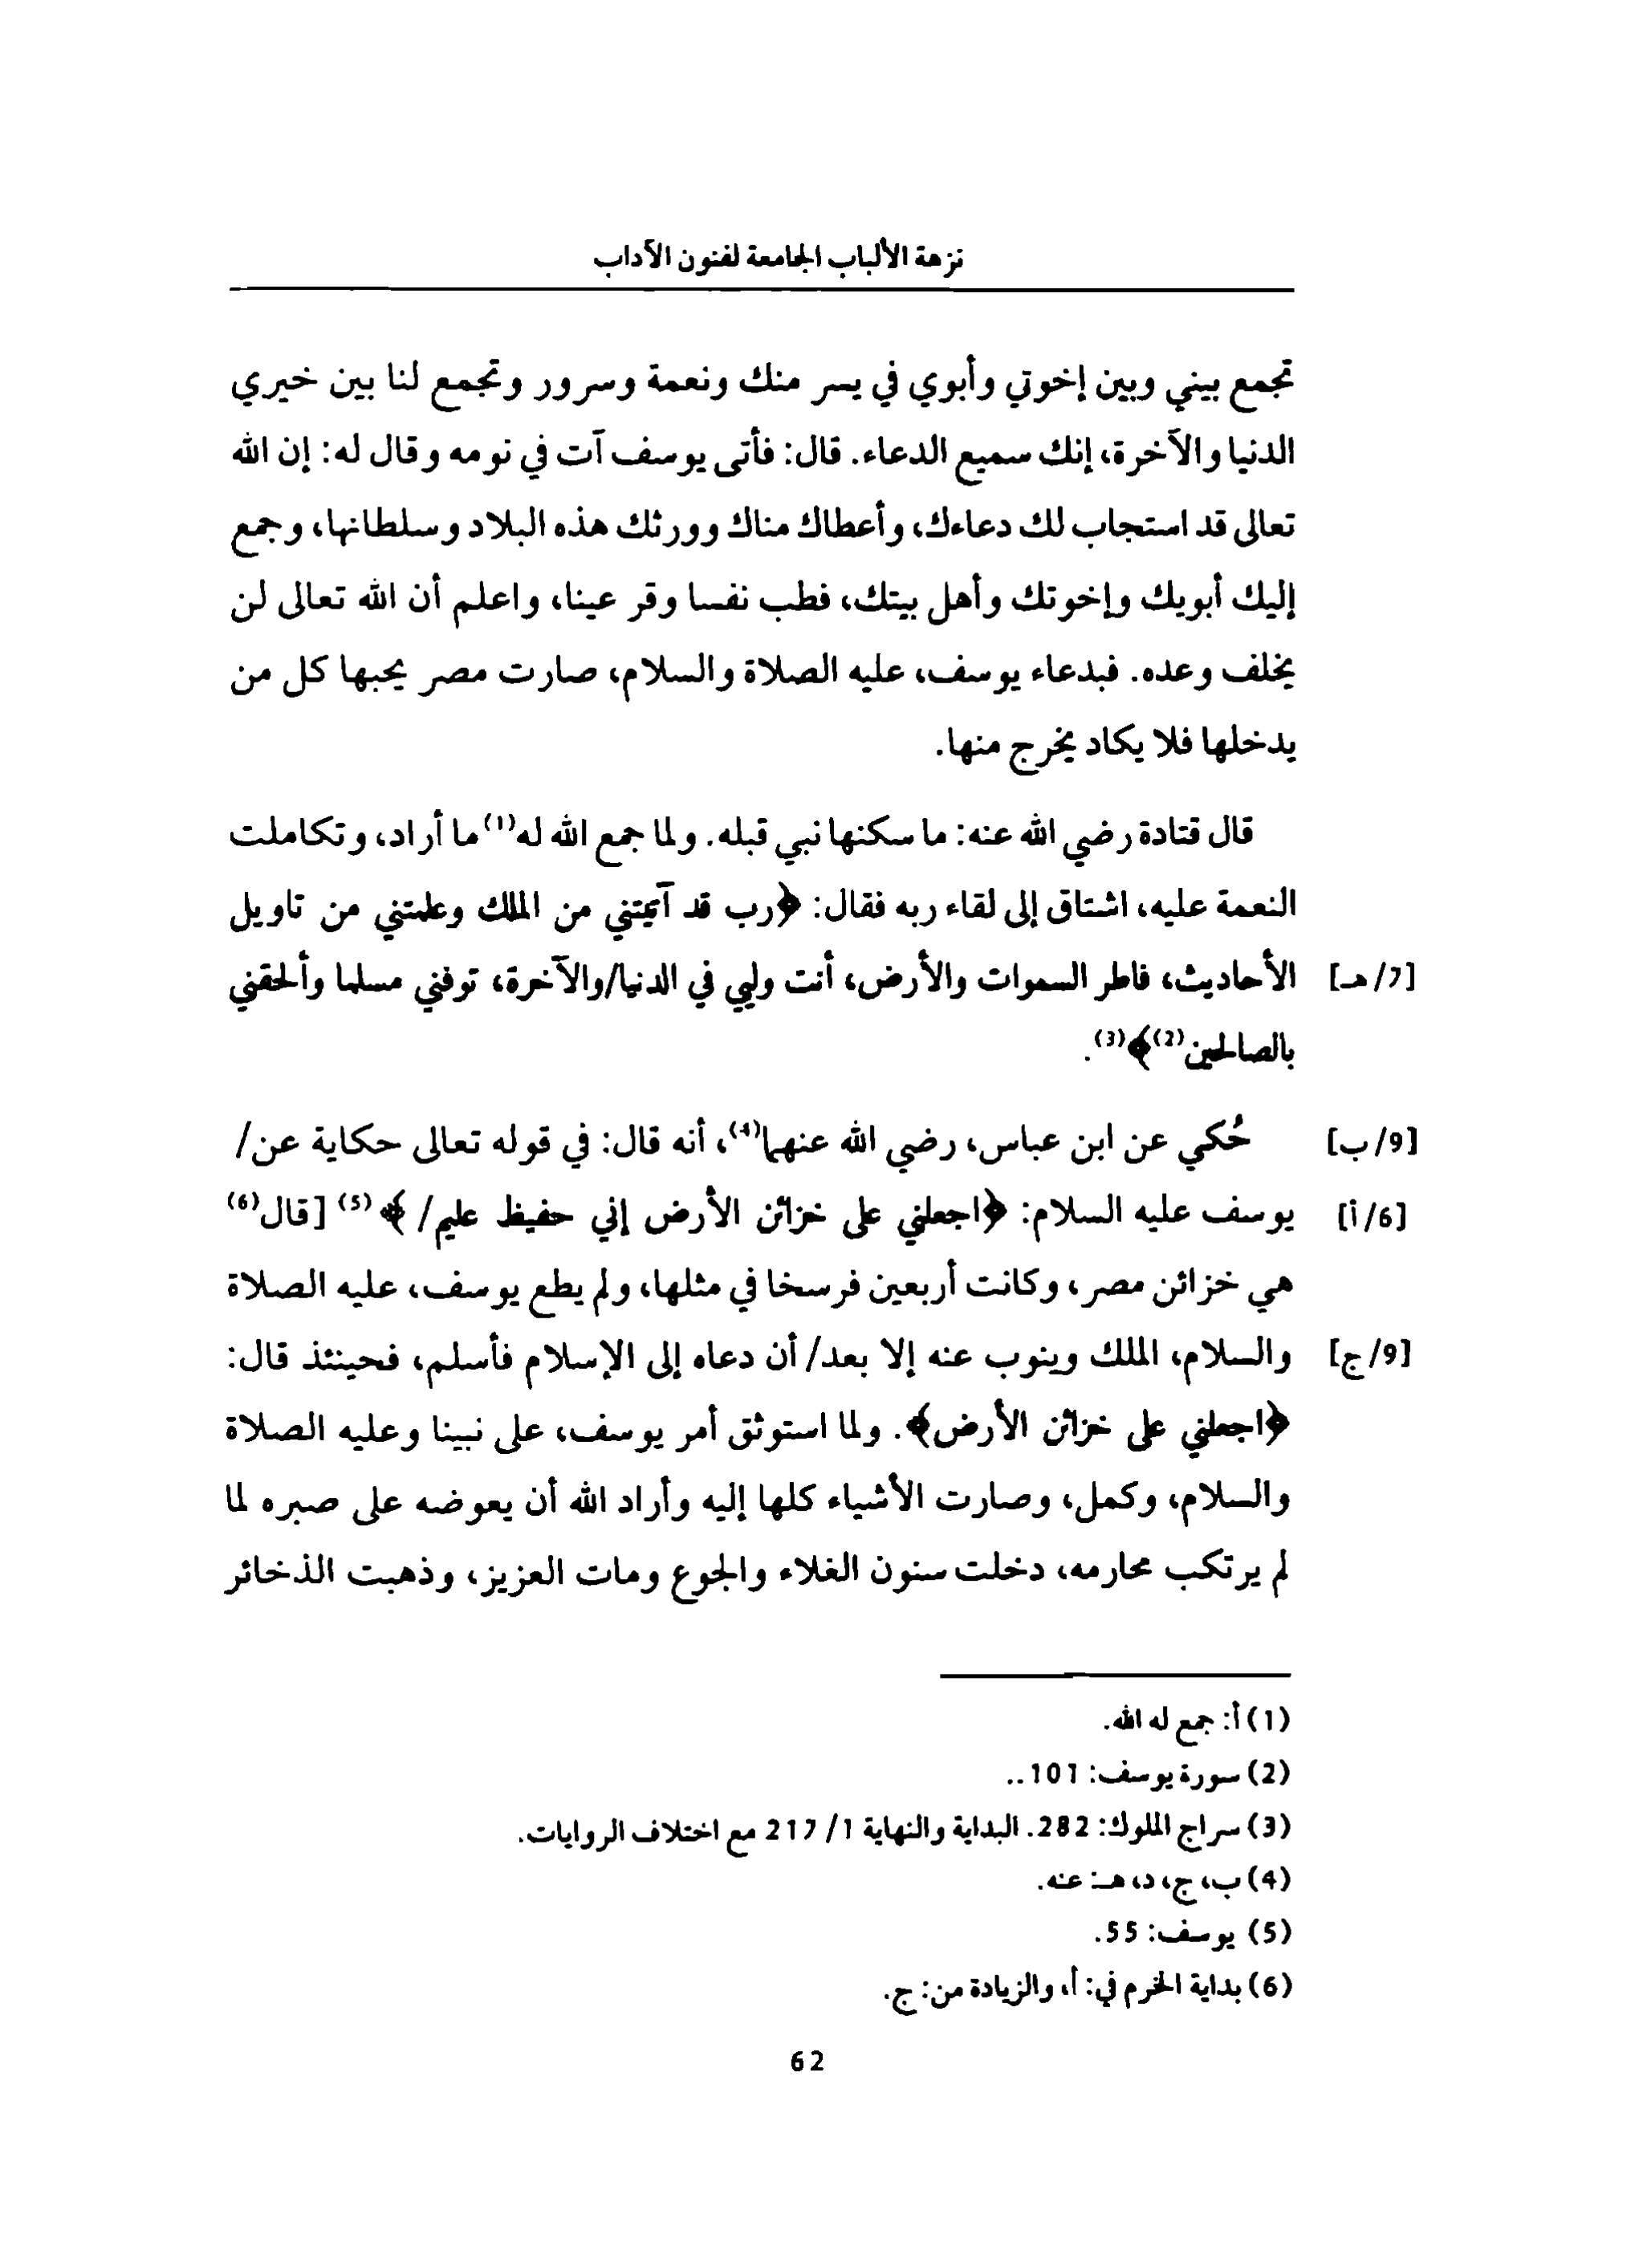 نزهة الألباب الجامعة لفنون الآداب
تجمع بيني وبين إخوتي وأبوي في يسر منك ونعمة وسرور وتجمع لنا بين خيري
الدنيا والآخرة، إنك سميع الدعاء. قال: فأتى يوسف آت في نومه وقال له: إن الله
تعالى قد استجاب لك دعاءك، وأعطاك مناك وورثك هذه البلاد وسلطانها، وجمع
إليك أبويك وإخوتك وأهل بيتك، فطب نفسا وقر عينا، واعلم أن الله تعالى لن
يخلف وعده. فبدعاء يوسف، عليه الصلاة والسلام، صارت مصر يحبها كل من
يدخلها فلا يكاد يخرج منها.
قال قتادة رضي الله عنه: ما سكنها نبي قبله. ولما جمع الله له(1) ما أراد، وتكاملت
النعمة عليه، اشتاق إلى لقاء ربه فقال: ﴿رب قد آتيتني من الملك وعلمتني من تاويل
[7/هـ] الأحاديث، فاطر السموات والأرض، أنت وليي في الدنيا/والآخرة، توفني مسلما وألحقني
بالصالحين(2)﴾(3).
[9/ب] حُكي عن ابن عباس، رضي الله عنهما(4)، أنه قال: في قوله تعالى حكاية عن/
[6/أ] يوسف عليه السلام: ﴿اجعلني على خزائن الأرض إني حفيظ عليم/﴾(5) [قال(6)
هي خزائن مصر، وكانت أربعين فرسخا في مثلها، ولم يطع يوسف، عليه الصلاة
[9/ج] والسلام، الملك وينوب عنه إلا بعد/ أن دعاه إلى الإسلام فأسلم، فحينئذ قال:
﴿اجعلني على خزائن الأرض﴾. ولما استوثق أمر يوسف، على نبينا وعليه الصلاة
والسلام، وكمل، وصارت الأشياء كلها إليه وأراد الله أن يعوضه على صبره لما
لم يرتكب محارمه، دخلت سنون الغلاء والجوع ومات العزيز، وذهبت الذخائر
(1) أ: جمع له الله.
(2) سورة يوسف: 101..
(3) سراج الملوك: 282. البداية والنهاية 1/ 217 مع اختلاف الروايات.
(4) ب، ج، د، هـ: عنه.
(5) يوسف: 55.
(6) بداية الخرم في: أ، والزيادة من: ج.
62